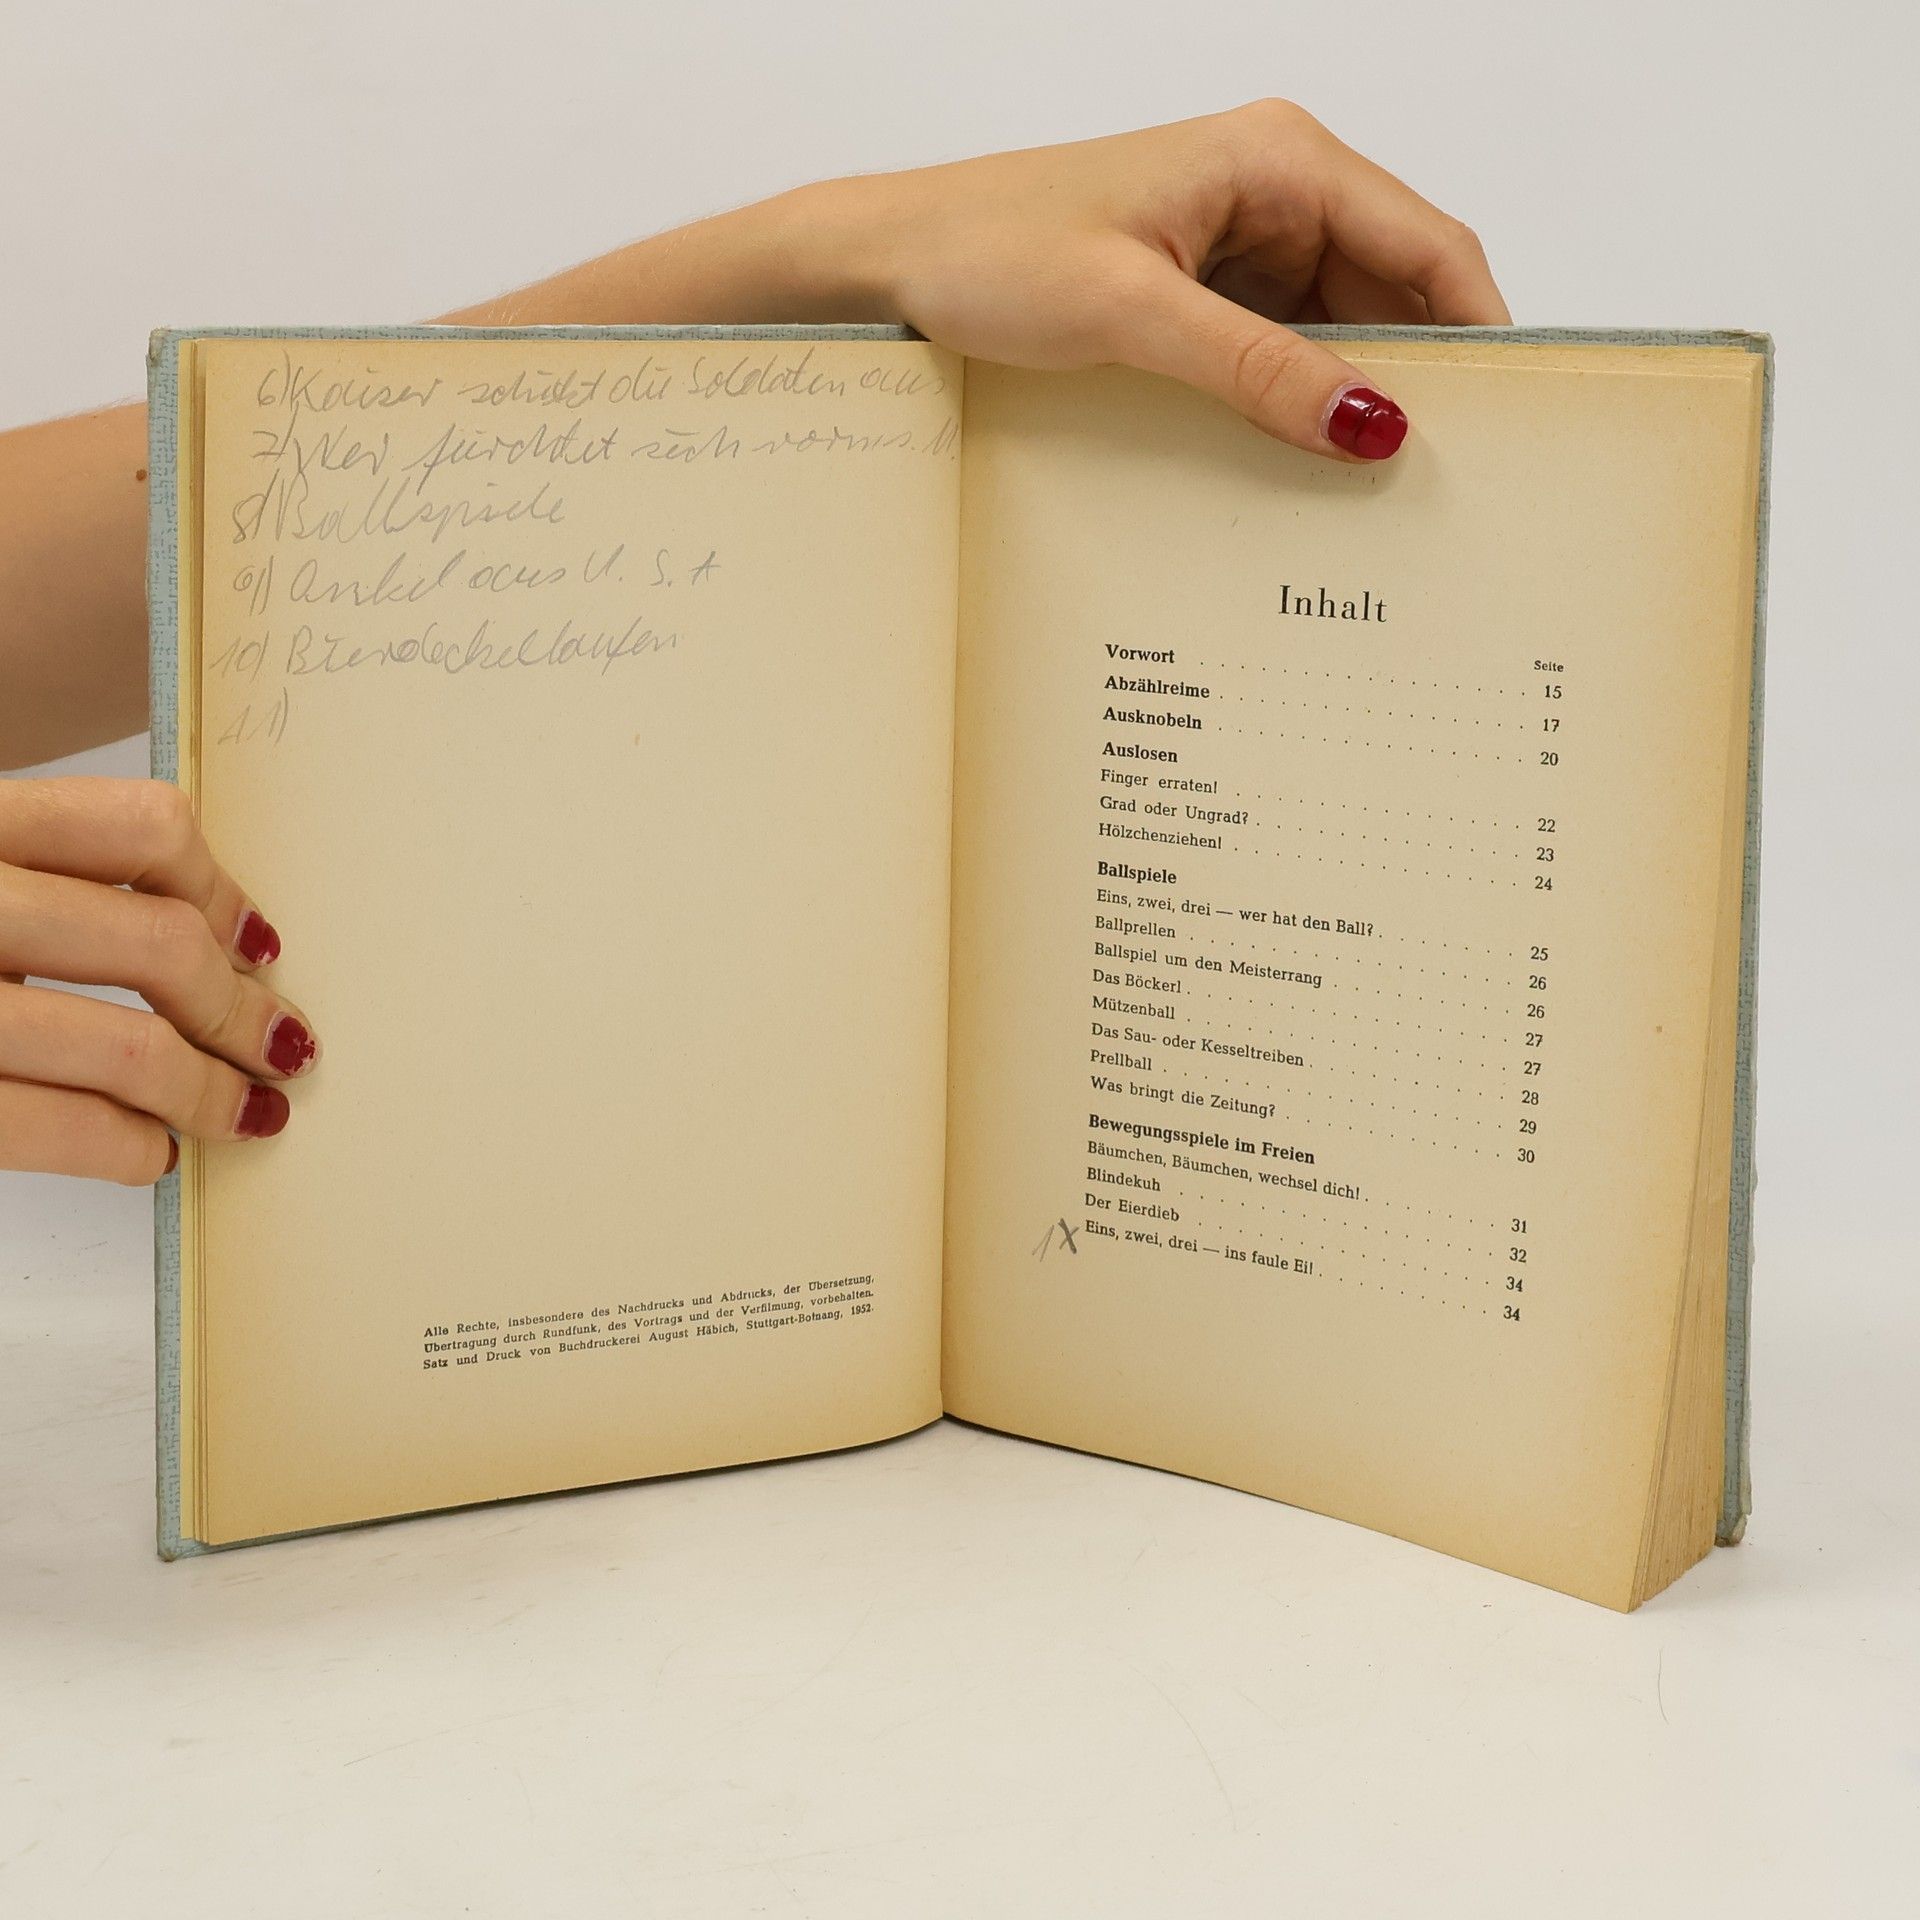 6) Kaiser schickt die Soldaten aus
7) Wer fürchtet sich vorm s. M.
8) Ballspiele
9) Onkel aus U. S. A
10) Bierdeckellaufen
11)
Alle Rechte, insbesondere des Nachdrucks und Abdrucks, der Übersetzung,
Übertragung durch Rundfunk, des Vortrags und der Verfilmung, vorbehalten.
Satz und Druck von Buchdruckerei August Häbich, Stuttgart-Botnang, 1952.
Inhalt
Seite
Vorwort . . . . . . . . . . . . . . . . . 15
Abzählreime . . . . . . . . . . . . . . . . 17
Ausknobeln . . . . . . . . . . . . . . . . 20
Auslosen
Finger erraten! . . . . . . . . . . . . . . . 22
Grad oder Ungrad? . . . . . . . . . . . . . . 23
Hölzchenziehen! . . . . . . . . . . . . . . . 24
Ballspiele
Eins, zwei, drei — wer hat den Ball? . . . . . . . . 25
Ballprellen . . . . . . . . . . . . . . . . 26
Ballspiel um den Meisterrang . . . . . . . . . . 26
Das Böckerl . . . . . . . . . . . . . . . . 27
Mützenball . . . . . . . . . . . . . . . . 27
Das Sau- oder Kesseltreiben . . . . . . . . . . . 28
Prellball . . . . . . . . . . . . . . . . . 29
Was bringt die Zeitung? . . . . . . . . . . . . 30
Bewegungsspiele im Freien
Bäumchen, Bäumchen, wechsel dich! . . . . . . . . 31
Blindekuh . . . . . . . . . . . . . . . . 32
Der Eierdieb . . . . . . . . . . . . . . . 34
1X Eins, zwei, drei — ins faule Ei! . . . . . . . . . 34